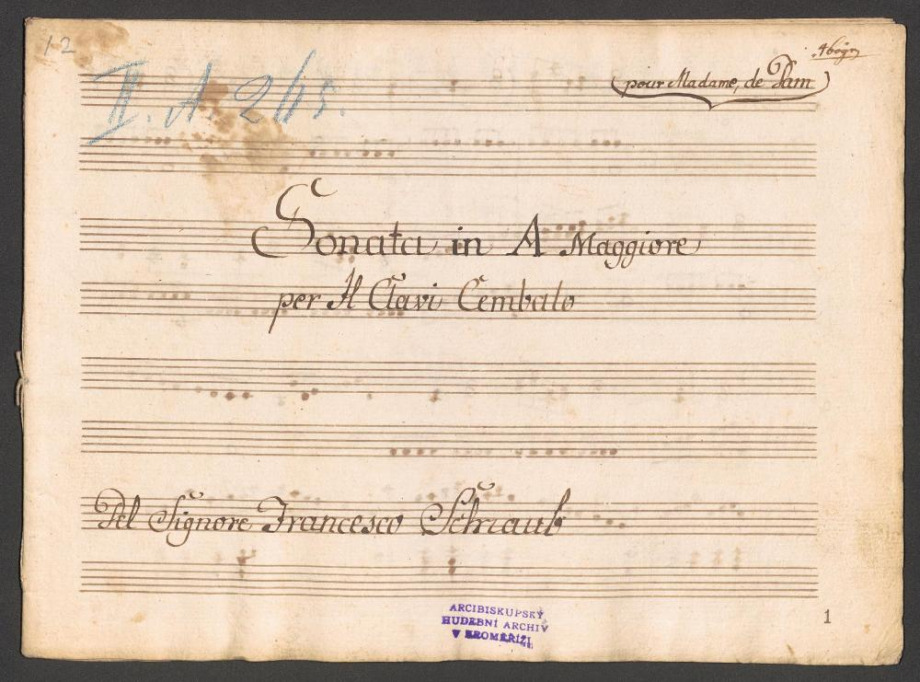 12
II. A. 265.
(pour Madame, de Pam)
Sonata in A Maggiore
per Il Clavi Cembalo
Del Signore Francesco
ARCIBISKUPSKÝ
HUDEBNÍ ARCHIV
V KROMĚŘÍŽI
1